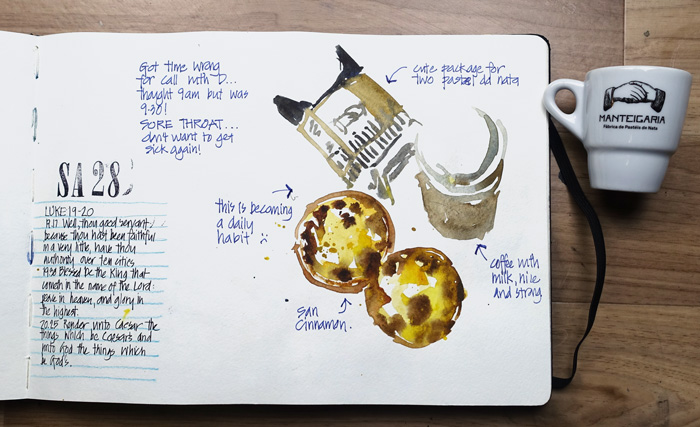 Got time wrong
for call with D...
thought 9am but was
9:30!
SORE THROAT...
don't want to get
sick again!
cute package for
two pastel dd nata
SA 28
LUKE 19-20
19.17 Well, thou good servant,
because thou hast been faithful
in a very little, have thou
authority over ten cities
19.38 Blessed be the King that
cometh in the name of the Lord:
peace in heaven, and glory in
the highest.
20.25 Render unto Caesar the
things which be Caesar's and
unto God the things which
be God's.
this is becoming
a daily
habit
san
cinnamon.
coffee with
milk, nice
and strong
MANTEIGARIA
Fábrica de Pastéis de Nata